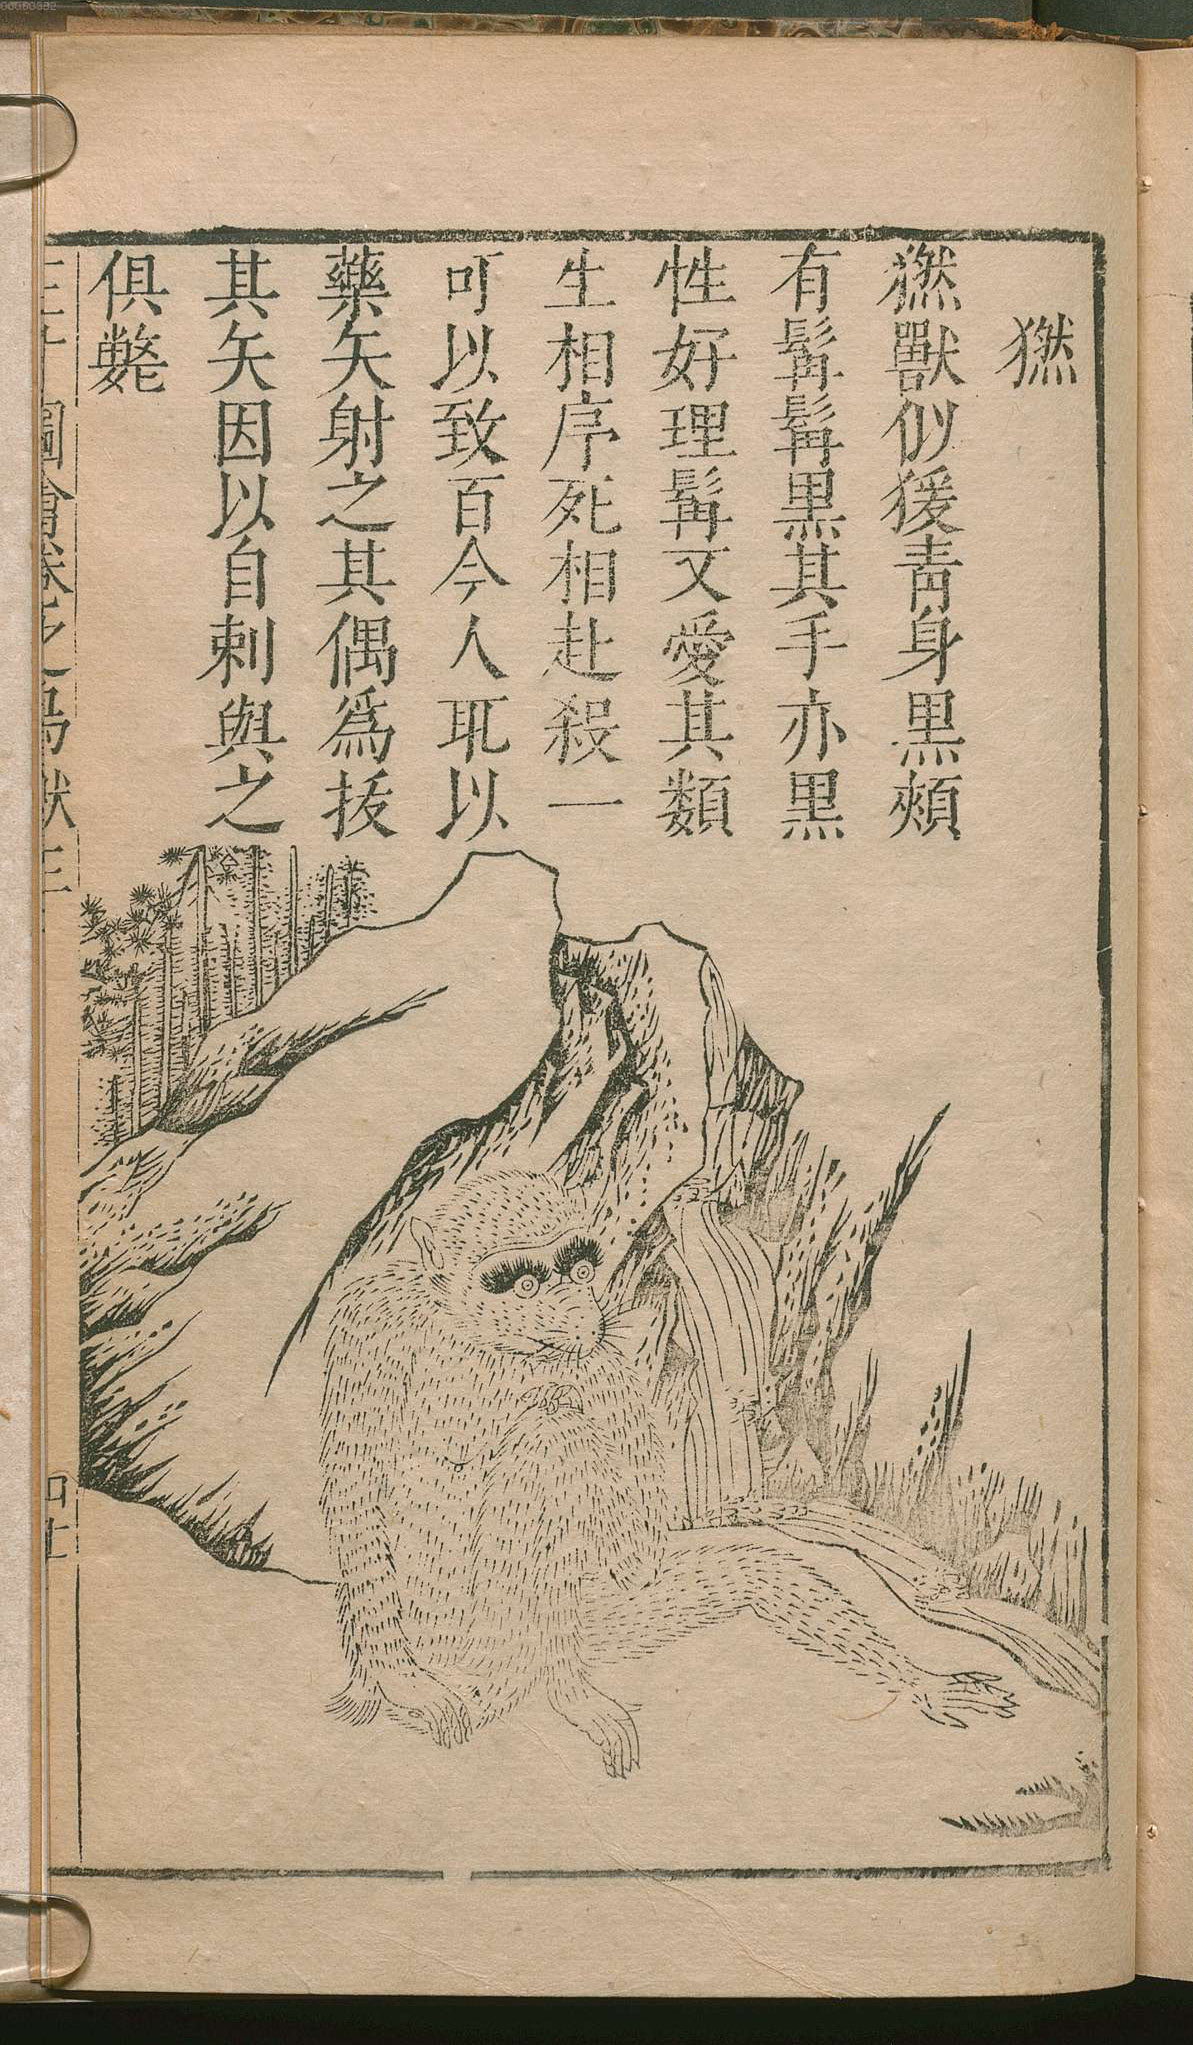 㺄
㺄獸似猨青身黑頰
有髯髯黑其手亦黑
性好理髯又愛其類
生相序死相赴殺一
可以致百今人取以
藥矢射之其偶爲拔
其矢因以自刺與之
俱斃
三才圖會卷之鳥獸三
00000392